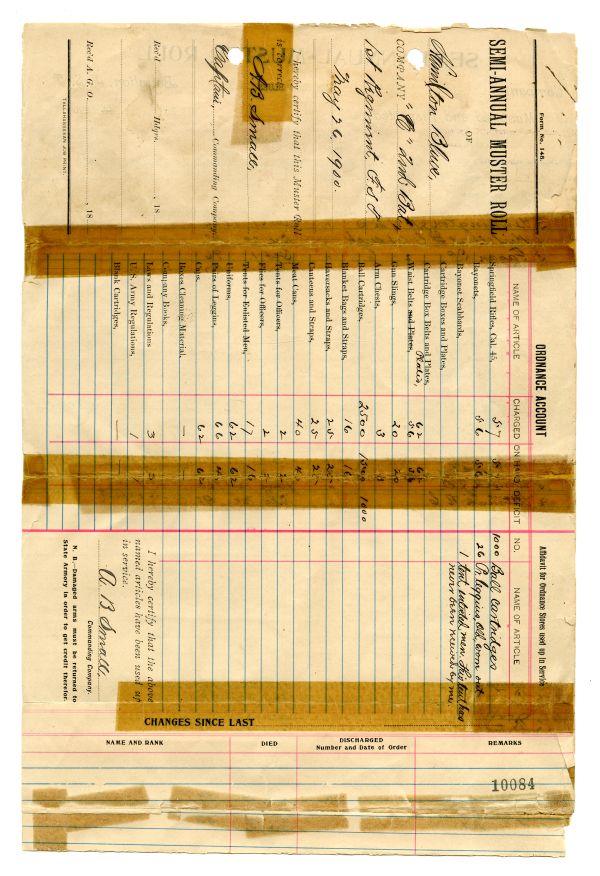 Form No. 148.
SEMI-ANNUAL MUSTER ROLL
OF
Hamilton Blues,
COMPANY "C" 2nd Bat,
1st Regiment, F S T
May 26, 1900.
I hereby certify that this Muster Roll
is correct.
A B Small,
Captain Commanding Company.
Rec'd Hdqrs. 18
Rec'd A. G. O. , 18
TALLAHASSEEAN JOB PRINT.
ORDNANCE ACCOUNT
NAME OF ARTICLE CHARGED ON HAND DEFICIT
Springfield Rifles, Cal. 45, 57
Bayonets, 56 56
Bayonet Scabbards,
Cartridge Boxes and Plates,
Cartridge Box Belts and Plates, 62 62
Waist Belts and Plates, Plates 56 56
Gun Slings, 20 20
Arm Chests, 3 3
Ball Cartridges, 2500 1500 1000
Blanket Bags and Straps, 16 16
Haversacks and Straps, 25 25
Canteens and Straps, 25 25
Meat Cans, 40 40
Tents for Officers, 2 2
Flies for Officers, 2 2
Tents for Enlisted Men, 17 16
Uniforms, 62 62
Pairs of Leggins, 66 40
Caps, 62 62
Boxes Cleaning Material, —
Company Books,
Laws and Regulations 3
U. S. Army Regulations, 1
Blank Cartridges, —
Affidavit for Ordnance Stores used up in Service
NO. NAME OF ARTICLE
1000 Ball Cartridges
26 Pr leggins, old, worn out
1 tent enlisted men, this tent has
never been received by me.
I hereby certify that the above
named articles have been used up
in service.
A. B Small,
Commanding Company.
N. B.—Damaged arms must be returned to
State Armory in order to get credit therefor.
CHANGES SINCE LAST
NAME AND RANK DIED DISCHARGED REMARKS
Number and Date of Order
10084